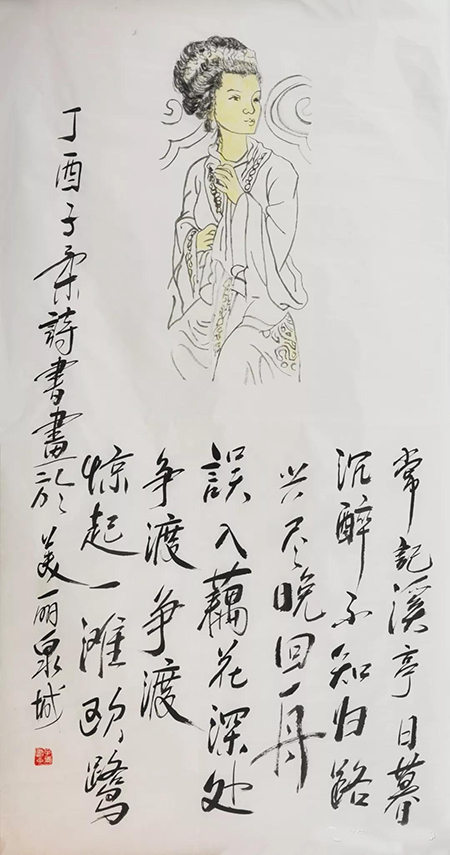 常記溪亭日暮
沉醉不知归路
兴尽晚回舟
誤入藕花深处
争渡争渡
惊起一滩鸥鹭
丁酉子柔詩書畫於美丽泉城